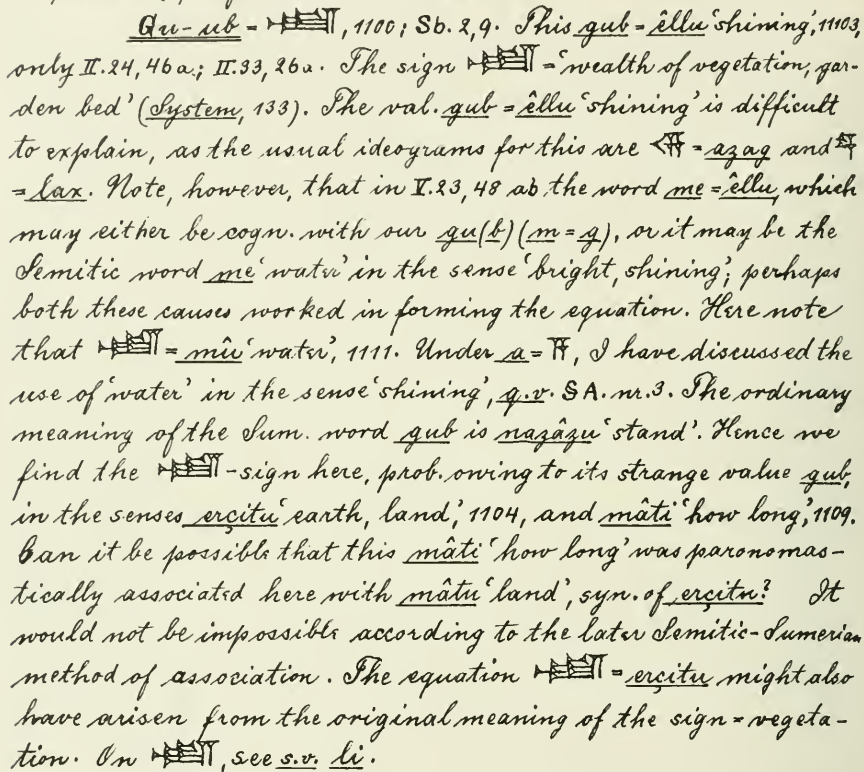 Gu-ub = 𒇷, 1100; Sb. 2, 9. This gub = êllu ‘shining’, 11103,
only II. 24, 46a.; II. 33, 26a. The sign 𒇷 = ‘wealth of vegetation, gar-
den bed’ (System, 133). The val. gub = êllu ‘shining’ is difficult
to explain, as the usual ideograms for this are = azag and
= lax. Note, however, that in V. 23, 48 ab the word me = êllu, which
may either be cogn. with our gu(b) (m = g), or it may be the
Semitic word me ‘water’ in the sense ‘bright, shining’; perhaps
both these causes worked in forming the equation. Here note
that 𒇷 = mîu ‘water’, 1111. Under a = 𒀀, I have discussed the
use of ‘water’ in the sense ‘shining’, q.v. SA. nr. 3. The ordinary
meaning of the Sum. word gub is nazâzu ‘stand’. Hence we
find the 𒇷-sign here, prob. owing to its strange value gub,
in the senses erçitu ‘earth, land,’ 1104, and mâti ‘how long’, 1109.
Can it be possible that this mâti ‘how long’ was paronomas-
tically associated here with mâtu ‘land’, syn. of erçitu? It
would not be impossible according to the later Semitic-Sumerian
method of association. The equation 𒇷 = erçitu might also
have arisen from the original meaning of the sign = vegeta-
tion. On 𒇷, see s.v. li.